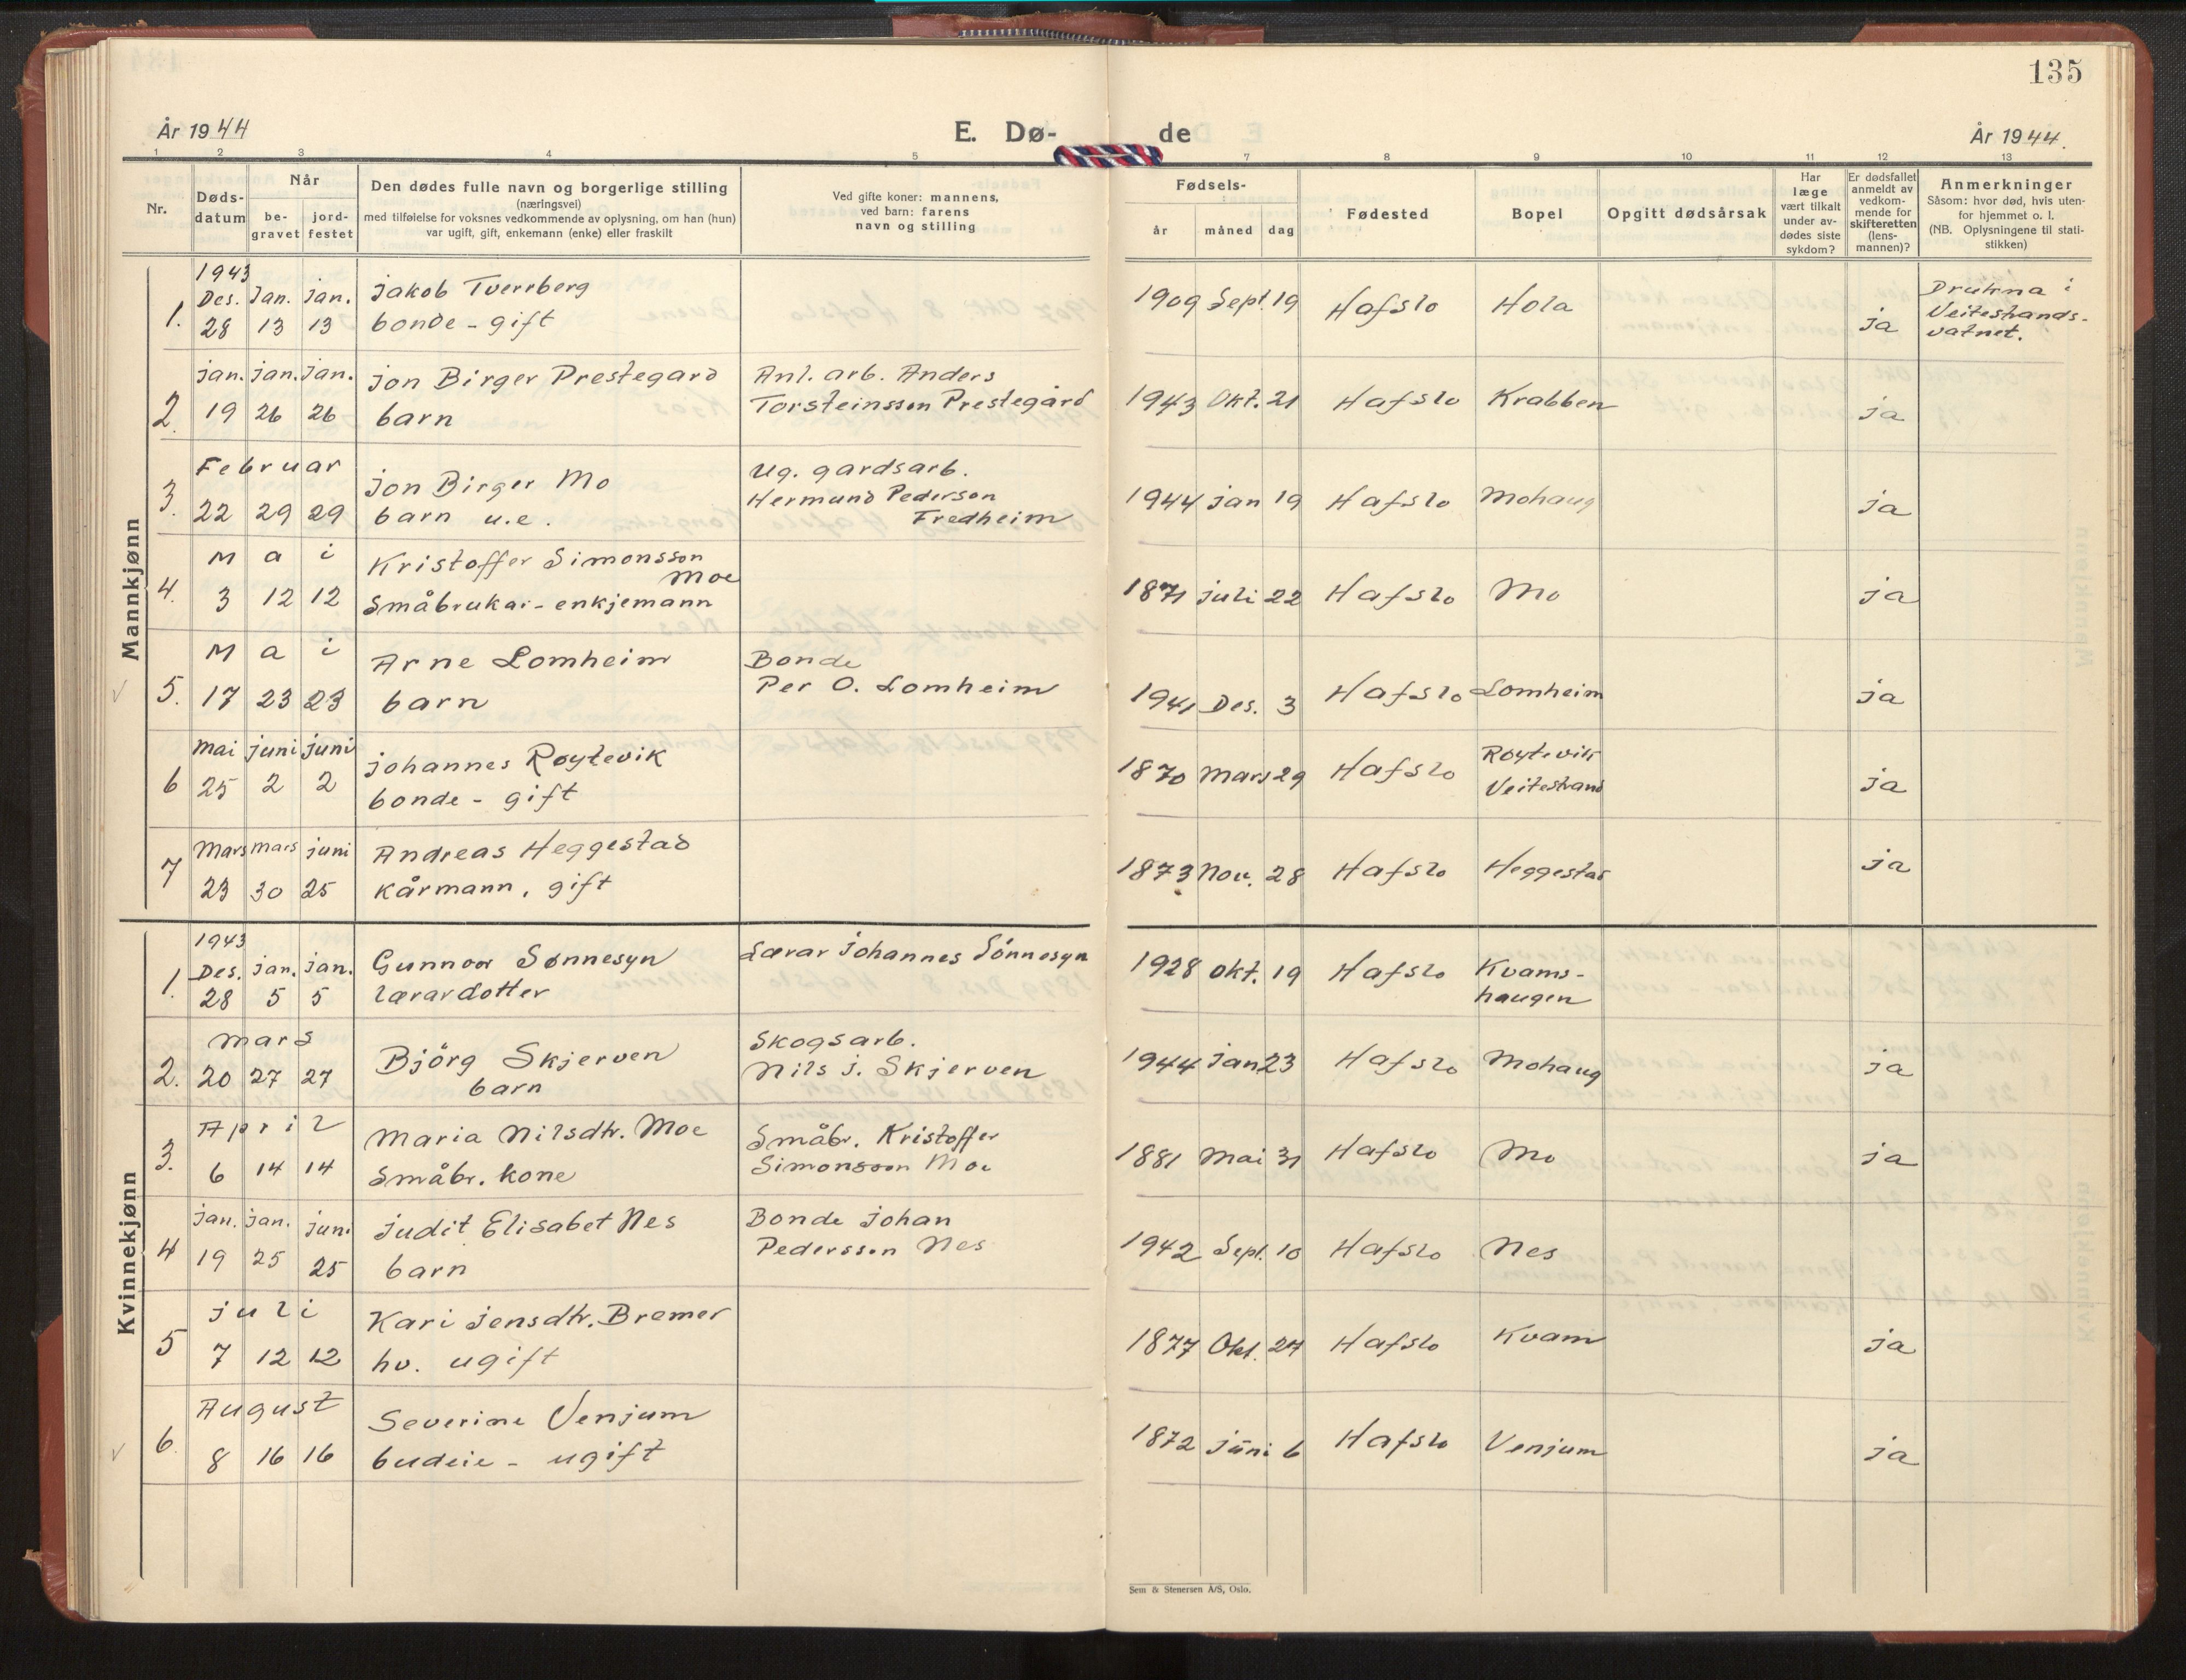 135
År 1944
E. Dø-
de
År 1944.
1 2 3 4 5 7 8 9 10 11 12 13
Nr.
Døds-
datum
Når
be-
gravet
jord-
festet
Den dødes fulle navn og borgerlige stilling
(næringsvei)
med tilføielse for voksnes vedkommende av oplysning, om han (hun)
var ugift, gift, enkemann (enke) eller fraskilt
Ved gifte koner: mannens,
ved barn: farens
navn og stilling
Fødsels-
år måned dag
Fødested
Bopel
Opgitt dødsårsak
Har
læge
vært tilkalt
under av-
dødes siste
sykdom?
Er dødsfallet
anmeldt av
vedkom-
mende for
skifteretten
(lens-
mannen)?
Anmerkninger
Såsom: hvor død, hvis uten-
for hjemmet o. l.
(NB. Oplysningene til stati-
stikken)
Mannkjønn
1943
Des. Jan. Jan. Jakob Tverrberg
1. 28 13 13 bonde - gift
1909 Sept. 19 Hafslo Hola ja
Drukna i
Veitestrands-
vatnet.
Jan. Jan. Jan. Jon Birger Prestegard Anl. arb. Anders
2. 19 26 26 barn Torsteinsson Prestegård
1943 Okt. 21 Hafslo Krabben ja
Februar Jon Birger Mo Ug. gardsarb.
3. 22 29 29 barn u.e. Hermund Pederson
Fredheim
1944 Jan 19 Hafslo Mohaug ja
Mai Kristoffer Simonsson
Moe
4. 3 12 12 Småbrukar - enkjemann
1871 Juli 22 Hafslo Mo ja
Mai Arne Lomheim Bonde
5. 17 23 23 barn Per O. Lomheim
1941 Des. 3 Hafslo Lomheim ja
Mai Juni Juni Johannes Røytevik
6 25 2 2 bonde - gift
1870 Mars 29 Hafslo Røytevik
Veitestrand ja
Mars Mars Juni Andreas Heggestad
7 23 30 25 Kårmann, gift
1873 Nov. 28 Hafslo Heggestad ja
Kvinnekjønn
1943
Des. Jan. Jan. Gunnvor Sønnesyn Lærar Johannes Sönnesyn
1. 28 5 5 lærardotter
1928 Okt. 19 Hafslo Kvams-
haugen
Mars Björg Skjerven Skogsarb.
2. 20 27 27 barn Nils J. Skjerven
1944 Jan 23 Hafslo Mohaug ja
April Maria Nilsdtr. Moe Småbr. Kristoffer
3. 6 14 14 Småbr. kone Simonsson Moe
1881 Mai 31 Hafslo Mo ja
Jan. Jan. Juni Judit Elisabet Nes Bonde Johan
4 19 25 25 barn Pedersson Nes
1942 Sept. 10 Hafslo Nes
Juli Kari Jensdtr. Bremer
5 7 12 12 hv. ugift
1877 Okt. 27 Hafslo Kvam ja
August Severine Venjum
6. 8 16 16 budeie - ugift
1872 Juni 6 Hafslo Venjum ja
Sem & Stenersen A/S, Oslo.